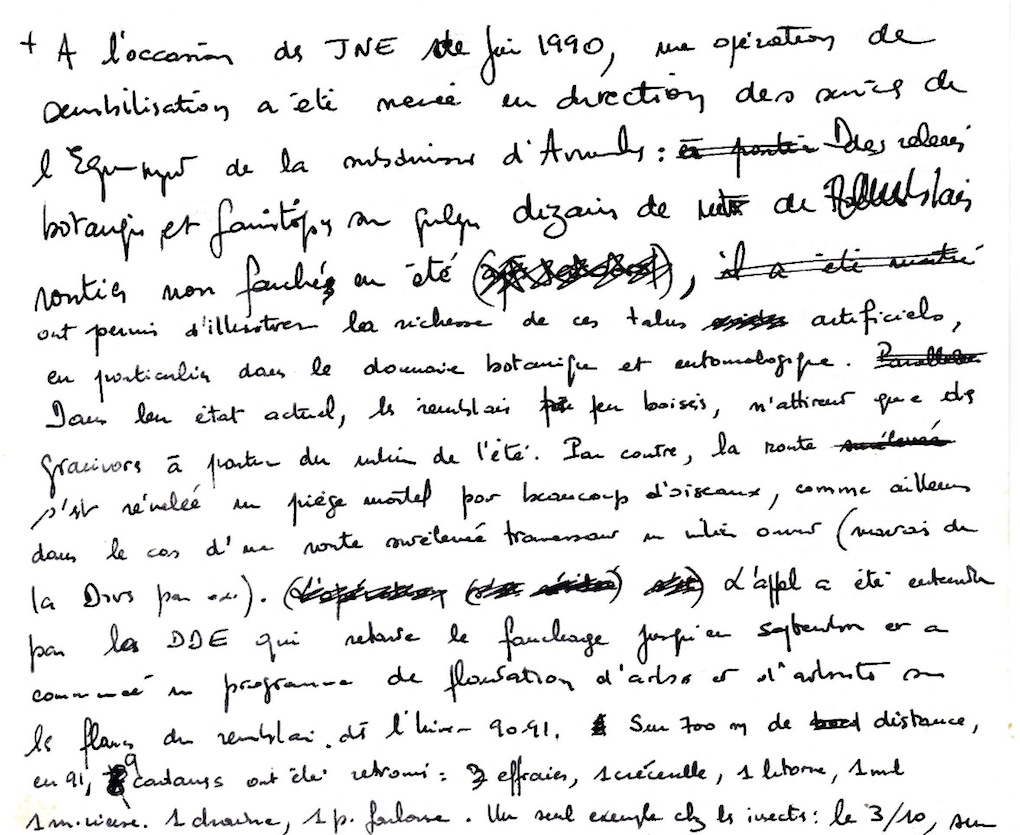 + A l'occasion des JNE de Juin 1990, une opération de
sensibilisation a été menée en direction des services de
l'Equipement de la subdivision d'Avranches : et partir Des relevés
botaniques et faunistiques sur quelques dizaines de de Remblais
routiers non fauchés en été ( ), il a été montré
ont permis d'illustrer la richesse de ces talus artificiels,
en particulier dans le domaine botanique et entomologique. Parallèle
Dans leur état actuel, les remblais peu boisés, n'attirent que des
granivores à partir du milieu de l'été. Par contre, la route surélevée
s'est révélée un piège mortel pour beaucoup d'oiseaux, comme ailleurs
dans le cas d'une route surélevée traversant un milieu ouvert (marais de
la Dives par ex.). L'appel a été entendu
par les DDE qui retarde le fauchage jusqu'en septembre et a
commencé un programme de plantation d'arbres et d'arbustes sur
les flancs du remblai dès l'hiver 90.91. Sur 700 m de bord distance,
en 91, 9 cadavres ont été retrouvés : 3 effraies, 1 crécerelle, 1 litorne, 1 ml
1 m. noir. 1 draine, 1 p. farlouse. Un seul exemple chez les insectes : le 3/10, sur